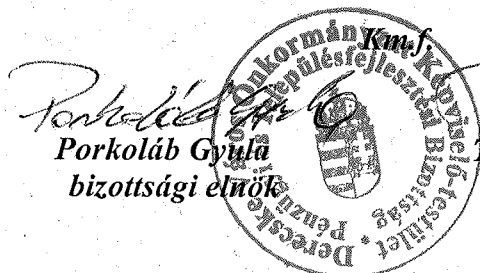 Km.f.
Porkoláb Gyula
Porkoláb Gyula
bizottsági elnök
Derecske Önkormányzat Képviselő-testület
Pénzügyi Településfejlesztési Bizottság